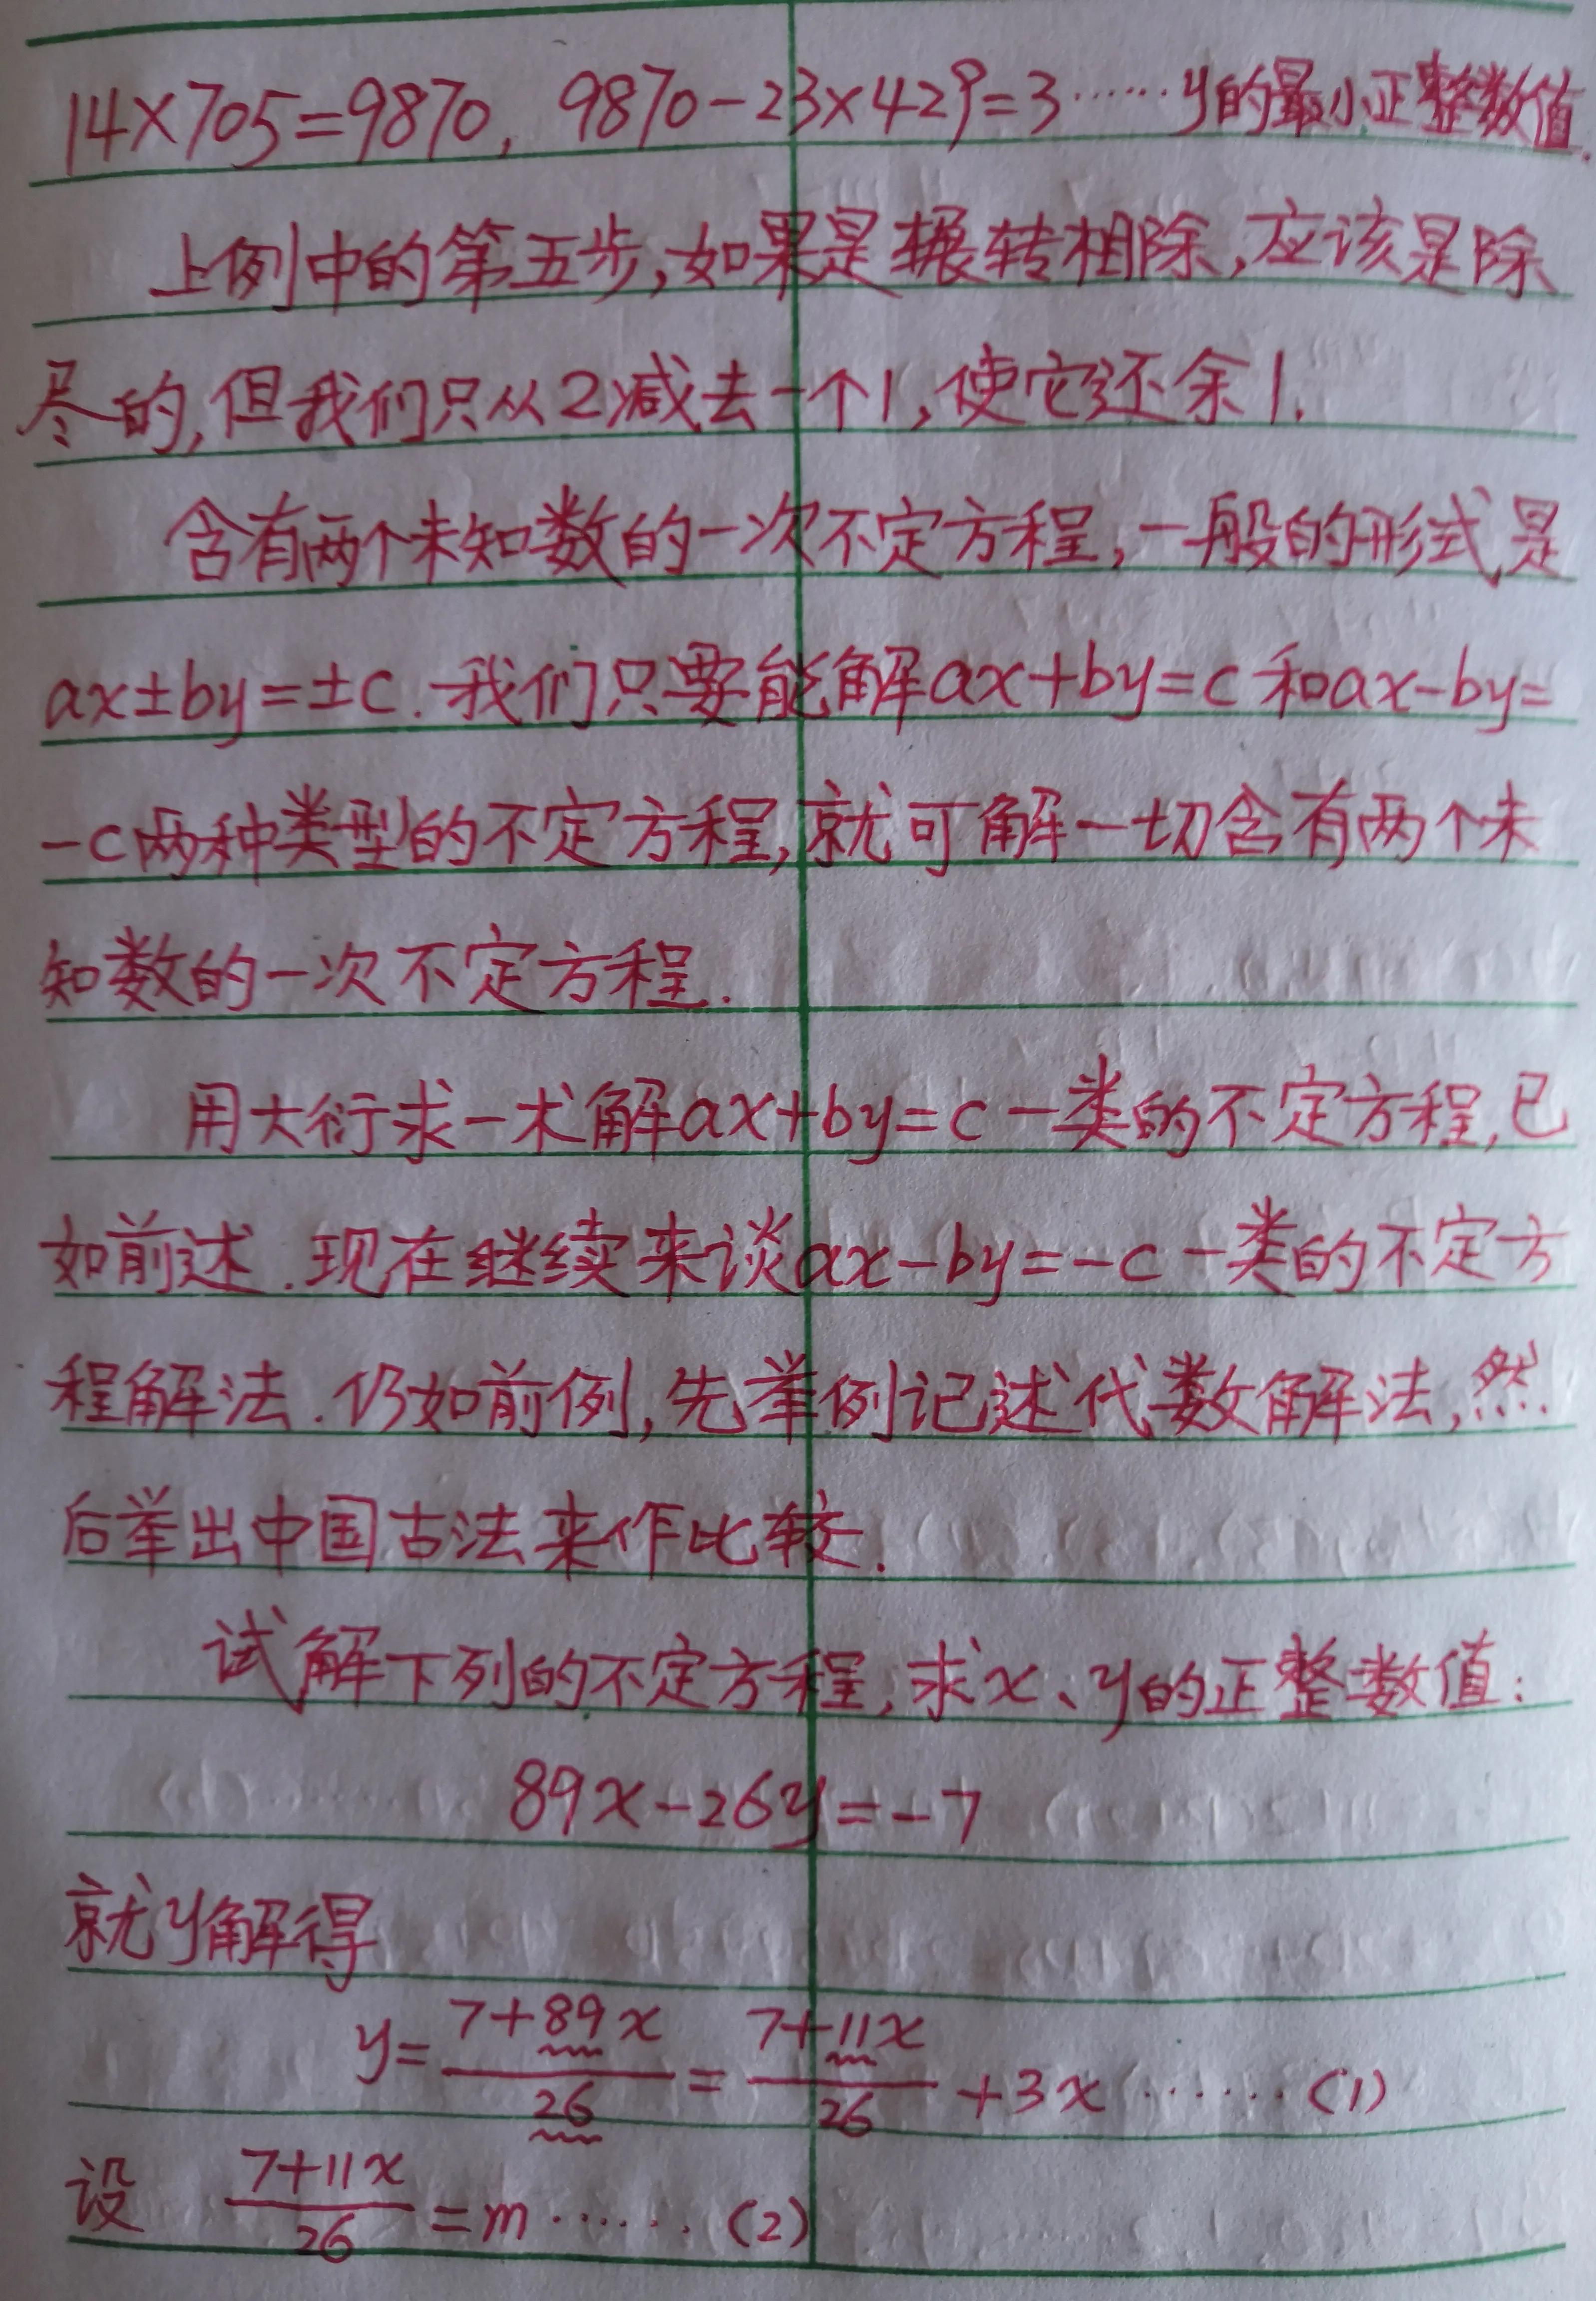 14×705=9870, 9870-23×429=3……y的最小正整数值.
上例中的第五步,如果是辗转相除,应该是除
尽的,但我们只从2减去一个1,使它还余1.
含有两个未知数的一次不定方程,一般的形式是
ax±by=±c.我们只要能解ax+by=c和ax-by=
-c两种类型的不定方程,就可解一切含有两个未
知数的一次不定方程.
用大衍求一术解ax+by=c一类的不定方程,已
如前述.现在继续来谈ax-by=-c一类的不定方
程解法.仍如前例,先举例记述代数解法,然
后举出中国古法来作比较.
试解下列的不定方程,求x、y的正整数值:
89x-26y=-7
就y解得
y=(7+89x)/26=(7+11x)/26+3x……(1)
设 (7+11x)/26=m……(2)